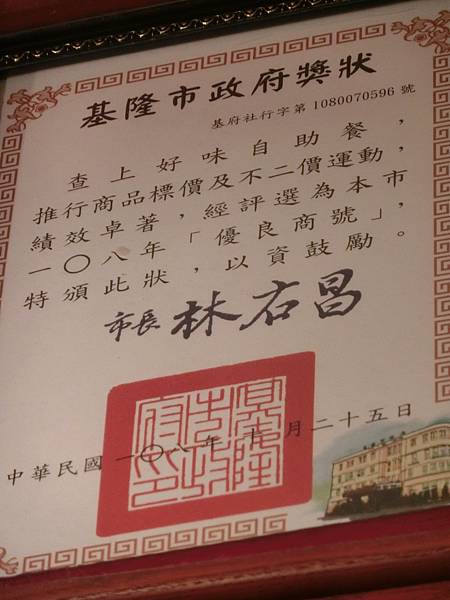 基隆市政府獎狀
基府社行字第 1080070596 號
查上好味自助餐，
推行商品標價及不二價運動，
績效卓著，經評選為本市
一〇八年「優良商號」，
特頒此狀，以資鼓勵。
市長 林右昌
中華民國一〇八年十月二十五日